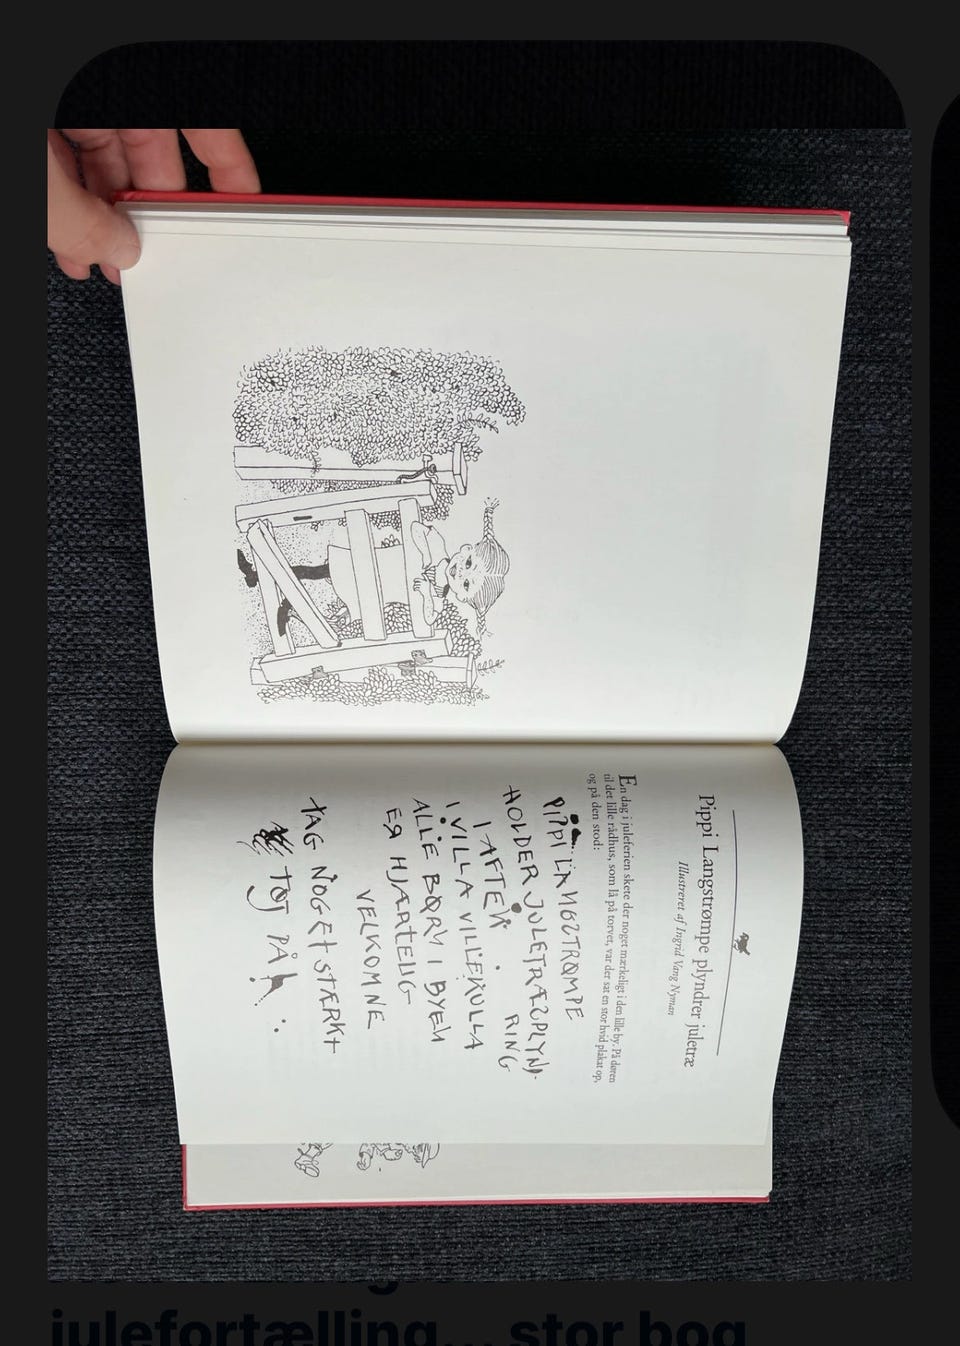 Pippi Langstrømpe plyndrer juletræ
Illustreret af Ingrid Vang Nyman
En dag i juleferien skete der noget mærkeligt i den lille by. På døren
til det lille rådhus, som lå på torvet, var der sat en stor hvid plakat op,
og på den stod:
PIPPI LANGSTRØMPE
HOLDER JULETRÆSPLYND-
RING
I AFTEN
I VILLA VILLEKULLA
ALLE BØRN I BYEN
ER HJÆRTELIG
VELKOMNE
TAG NOGET STÆRKT
TØJ PÅ!
julefortælling... stor bog